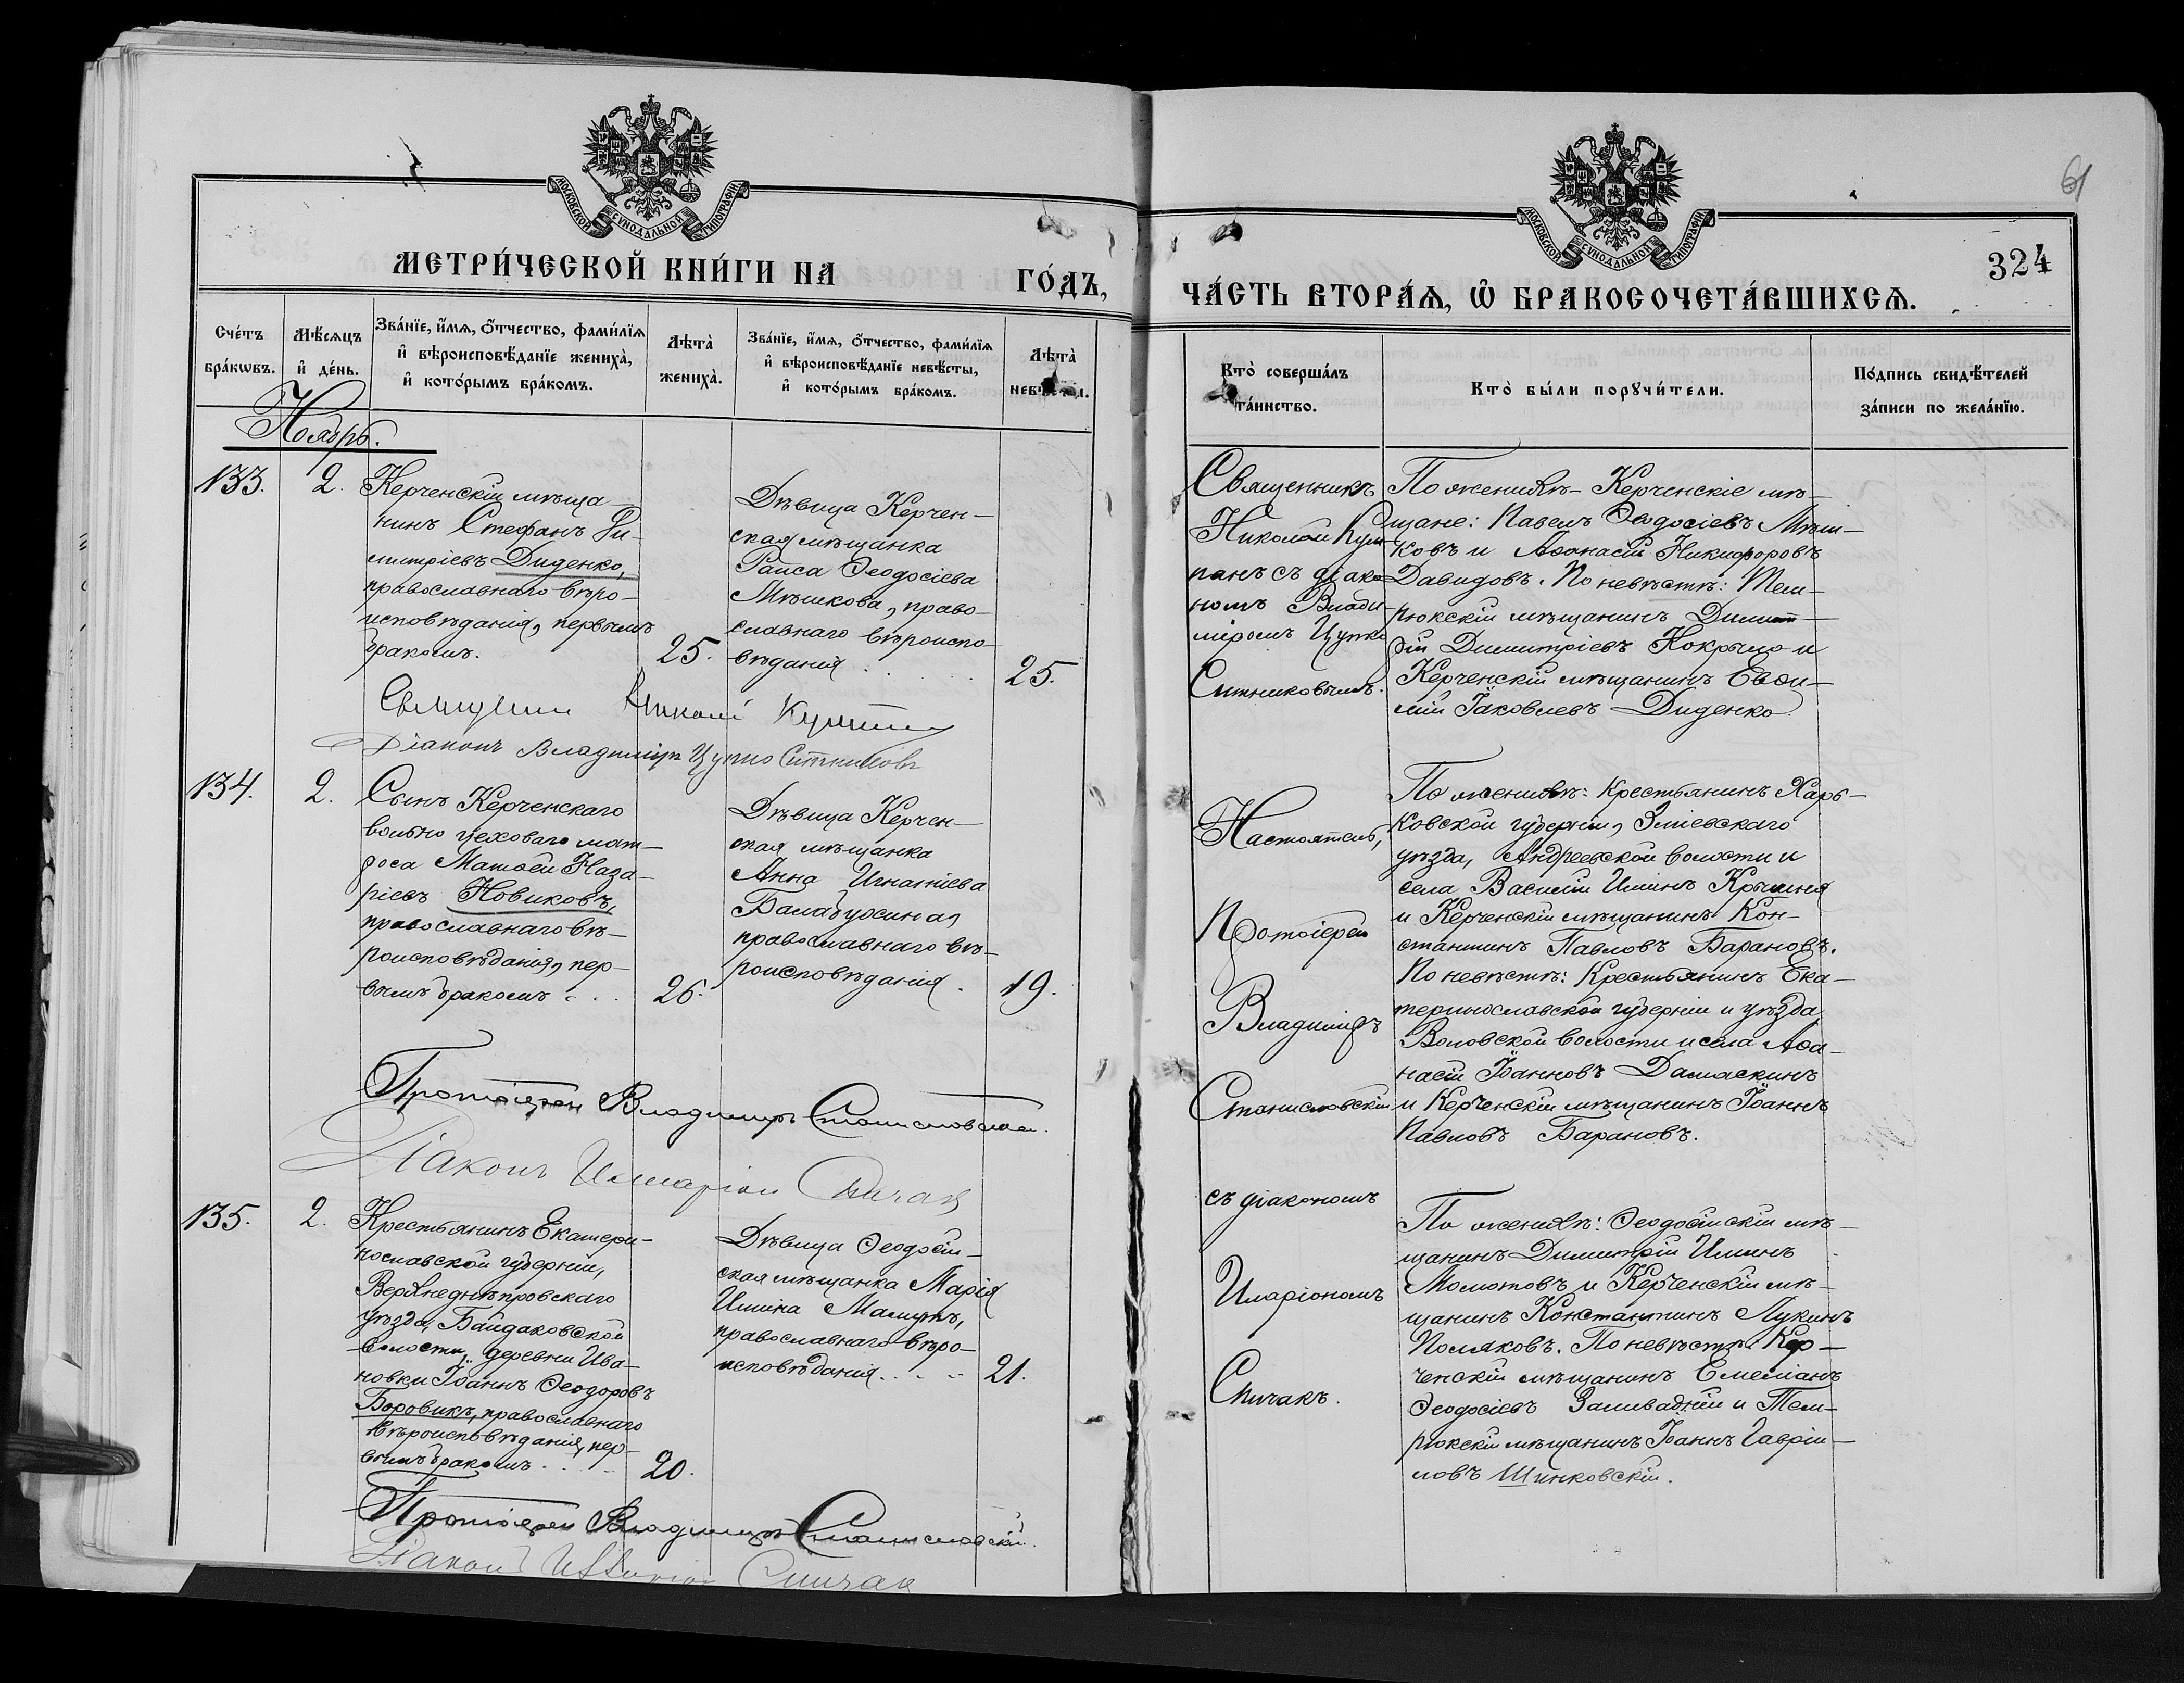 МОСКОВСКОЙ СУНОДАЛЬНОЙ ТИПОГРАФІИ
МЕТРИ́ЧЕСКОЙ КНИ́ГИ НА ГО́ДЪ,
Сче́тъ бра́кѡвъ.
Мѣ́сяцъ и҆ де́нь.
Зва́нїе, и҆́мѧ, ѻ҆́тчество, фами́лїѧ
и҆ вѣроисповѣ́данїе жениха̀,
и҆ кото́рымъ бра́комъ.
Лѣта̀
жениха̀.
Зва́нїе, и҆́мѧ, ѻ҆́тчество, фами́лїѧ
и҆ вѣроисповѣ́данїе невѣ́сты,
и҆ кото́рымъ бра́комъ.
Лѣта̀
невѣ́сты.
Ноябрь.
133.
2.
Керченскій мѣща-
нинъ Стефанъ Ди-
митріевъ Диденко,
православнаго вѣро-
исповѣданія, первымъ
бракомъ.
25.
Дѣвица Керчен-
ская мѣщанка
Раиса Ѳеодосіева
Мѣшкова, право-
славнаго вѣроиспо-
вѣданія . . . .
25.
Священник Николай
Діаконъ Владиміръ Цупко Ситниковъ
134.
2.
Сынъ Керченскаго
вольно цеховаго мат-
роса Матѳей Наза-
ріевъ Новиковъ,
православнаго вѣ-
роисповѣданія, пер-
вымъ бракомъ . . .
26.
Дѣвица Керчен-
ская мѣщанка
Анна Игнатіева
православнаго вѣ-
роисповѣданія .
19.
Протоіерей Владиміръ Станиславскій.
Діаконъ Иларіон Спичак
135.
2.
Крестьянинъ Екатери-
нославской губерніи,
Верхнеднѣпровскаго
уѣзда, Байдаковской
волости, деревни Ива-
новки Іоаннъ Ѳеодоровъ
Боровикъ, православнаго
вѣроисповѣданія, пер-
вымъ бракомъ . . . –
20.
Дѣвица Ѳеодосій-
ская мѣщанка Марія
Ильина Мамутъ,
православнаго вѣро-
исповѣданія . . . –
21.
Протоіерей Владиміръ Станиславскій.
Діаконъ Иларіон Спичак
61
МОСКОВСКОЙ СУНОДАЛЬНОЙ ТИПОГРАФІИ
324
ЧА́СТЬ ВТОРА́Ѧ, Ѡ҆ БРАКОСОЧЕТА́ВШИХСѦ.
Кто̀ соверша́лъ
та́инство.
Кто̀ бы́ли порꙋчи́тели.
По́дпись свидѣ́телей
за́писи по жела́нїю.
Священникъ
Николай Кум-
панъ съ діако-
номъ Влади-
міромъ Цупко
Ситниковымъ.
По женихѣ – Керченскіе мѣ-
щане: Павелъ Ѳеодосіевъ Мѣш-
ковъ и Аѳанасій Никифоровъ
Давидовъ. По невѣстѣ: Тем-
рюкскій мѣщанинъ Димит-
рій Димитріевъ Кокрыцо и
Керченскій мѣщанинъ Евѳи-
мій Іаковлевъ Диденко.
Настоятель,
Протоіерей
Владиміръ
Станиславскій
съ діакономъ
Иларіономъ
Спичакъ.
По женихѣ: Крестьянинъ Харь-
ковской губерніи, Зміевскаго
уѣзда, Андреевской волости и
села Василій Ильинъ
и Керченскій мѣщанинъ Кон-
стантинъ Павловъ Барановъ.
По невѣстѣ: Крестьянинъ Ека-
теринославской губерніи и уѣзда,
Воловской волости и села Аѳа-
насій Іоанновъ Дамаскинъ
и Керченскій мѣщанинъ Іоаннъ
Павловъ Барановъ.
По женихѣ: Ѳеодосійскій мѣ-
щанинъ Димитрій Ильинъ
Молотовъ и Керченскій мѣ-
щанинъ Константинъ Лукинъ
Поляковъ. По невѣстѣ: Кер-
ченскій мѣщанинъ Емеліанъ
Ѳеодосіевъ Заливадній и Тем-
рюкскій мѣщанинъ Іоаннъ Гавріи-
ловъ Шинковскій.